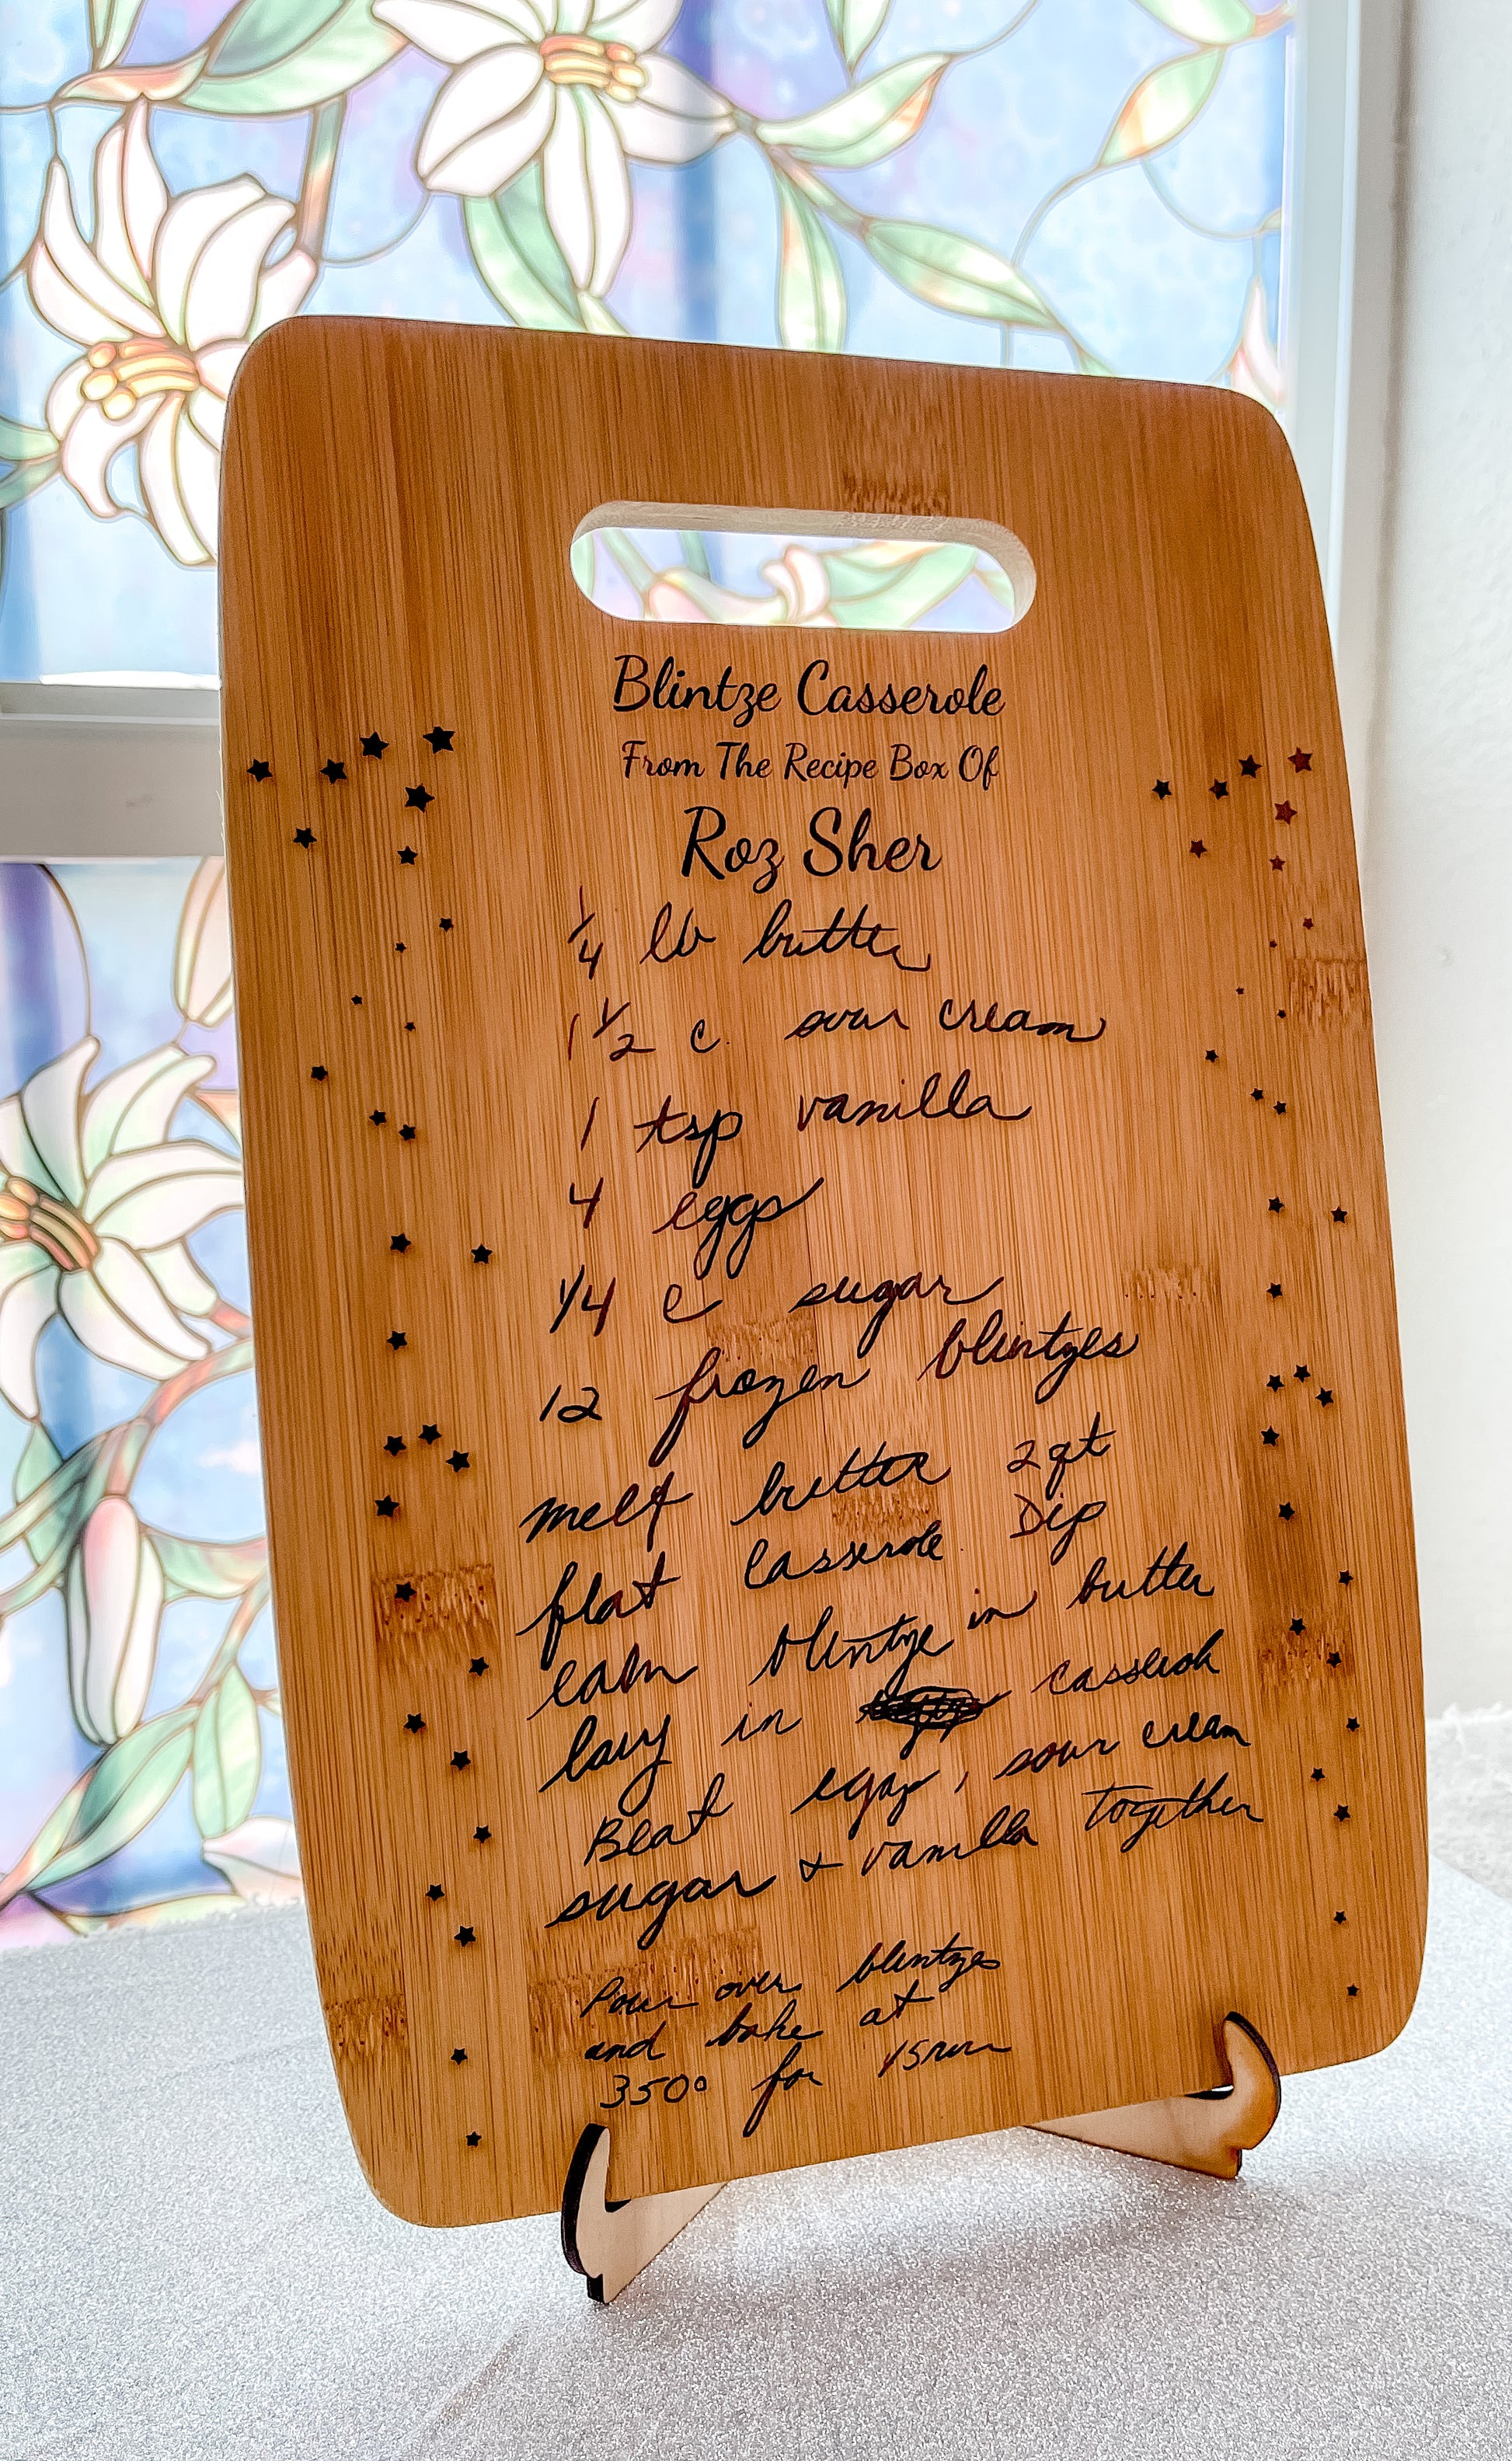 Blintze Casserole
From The Recipe Box Of
Roz Sher
1/4 lb butter
1 1/2 c. sour cream
1 tsp vanilla
4 eggs
1/4 c sugar
12 frozen blintzes
melt butter 2qt
flat casserole. Dip
each blintze in butter
lay in casserole
Beat eggs, sour cream
sugar + vanilla together
Pour over blintzes
and bake at
350° for 45min